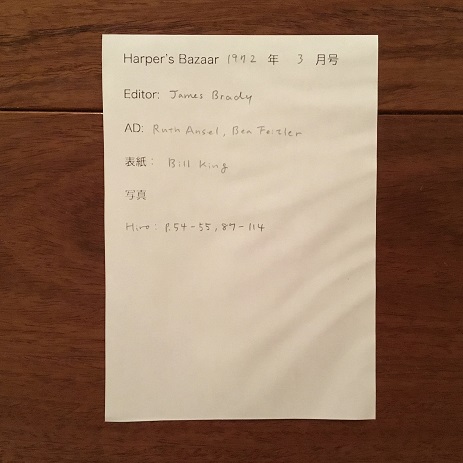 Harper's Bazaar 1972 年 3 月号
Editor: James Brady
AD: Ruth Ansel, Bea Feitler
表紙: Bill King
写真
Hiro: P.54-55, 87-114